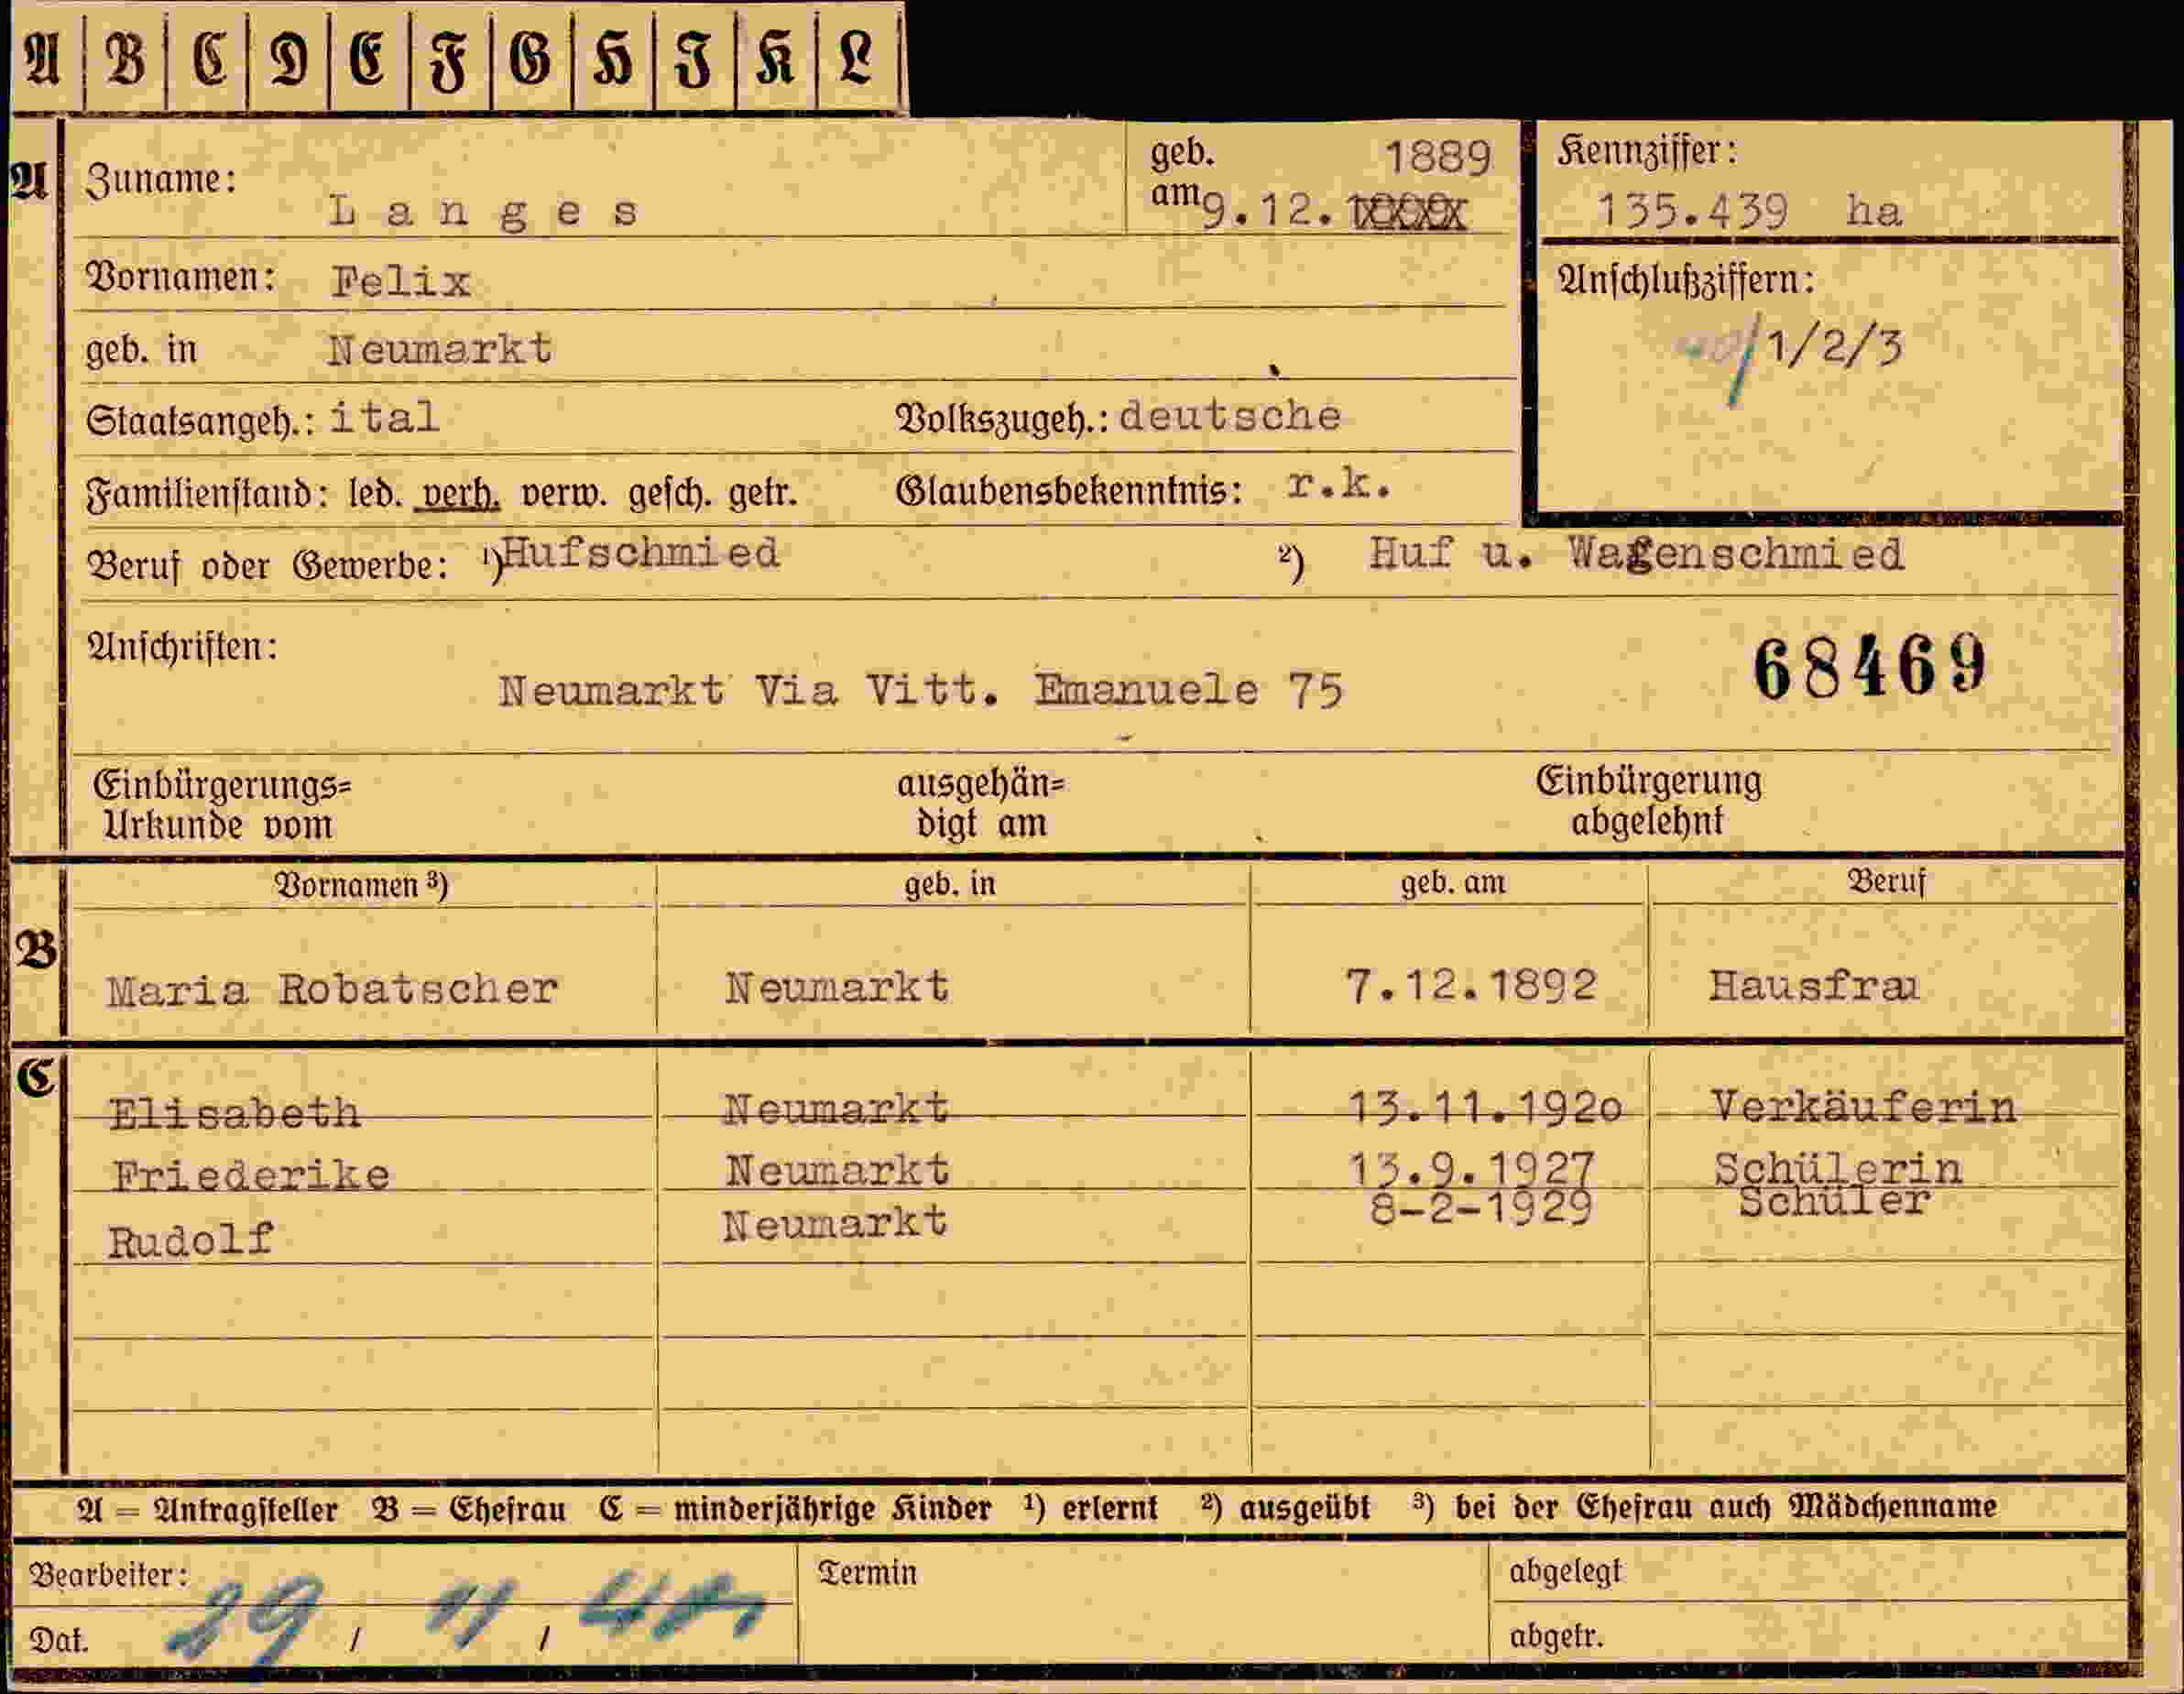 A B C D E F G H I K L
A
Zuname: Langes
geb. am 9.12. 1889
Kennziffer:
135.439 ha
Vornamen: Felix
Anschlußziffern:
1/2/3
geb. in Neumarkt
Staatsangeh.: ital Volkszugeh.: deutsche
Familienstand: led. verh. verw. gesch. getr. Glaubensbekenntnis: r.k.
Beruf oder Gewerbe: ¹)Hufschmied ²) Huf u. Wagenschmied
Anschriften:
68469
Neumarkt Via Vitt. Emanuele 75
Einbürgerungs= ausgehän= Einbürgerung
Urkunde vom digt am abgelehnt
Vornamen ³) geb. in geb. am Beruf
B
Maria Robatscher Neumarkt 7.12.1892 Hausfrau
C
Elisabeth Neumarkt 13.11.1920 Verkäuferin
Friederike Neumarkt 13.9.1927 Schülerin
Rudolf Neumarkt 8-2-1929 Schüler
A = Antragsteller B = Ehefrau C = minderjährige Kinder ¹) erlernt ²) ausgeübt ³) bei der Ehefrau auch Mädchenname
Bearbeiter: Termin abgelegt
Dat. 29 / 11 / abgetr.